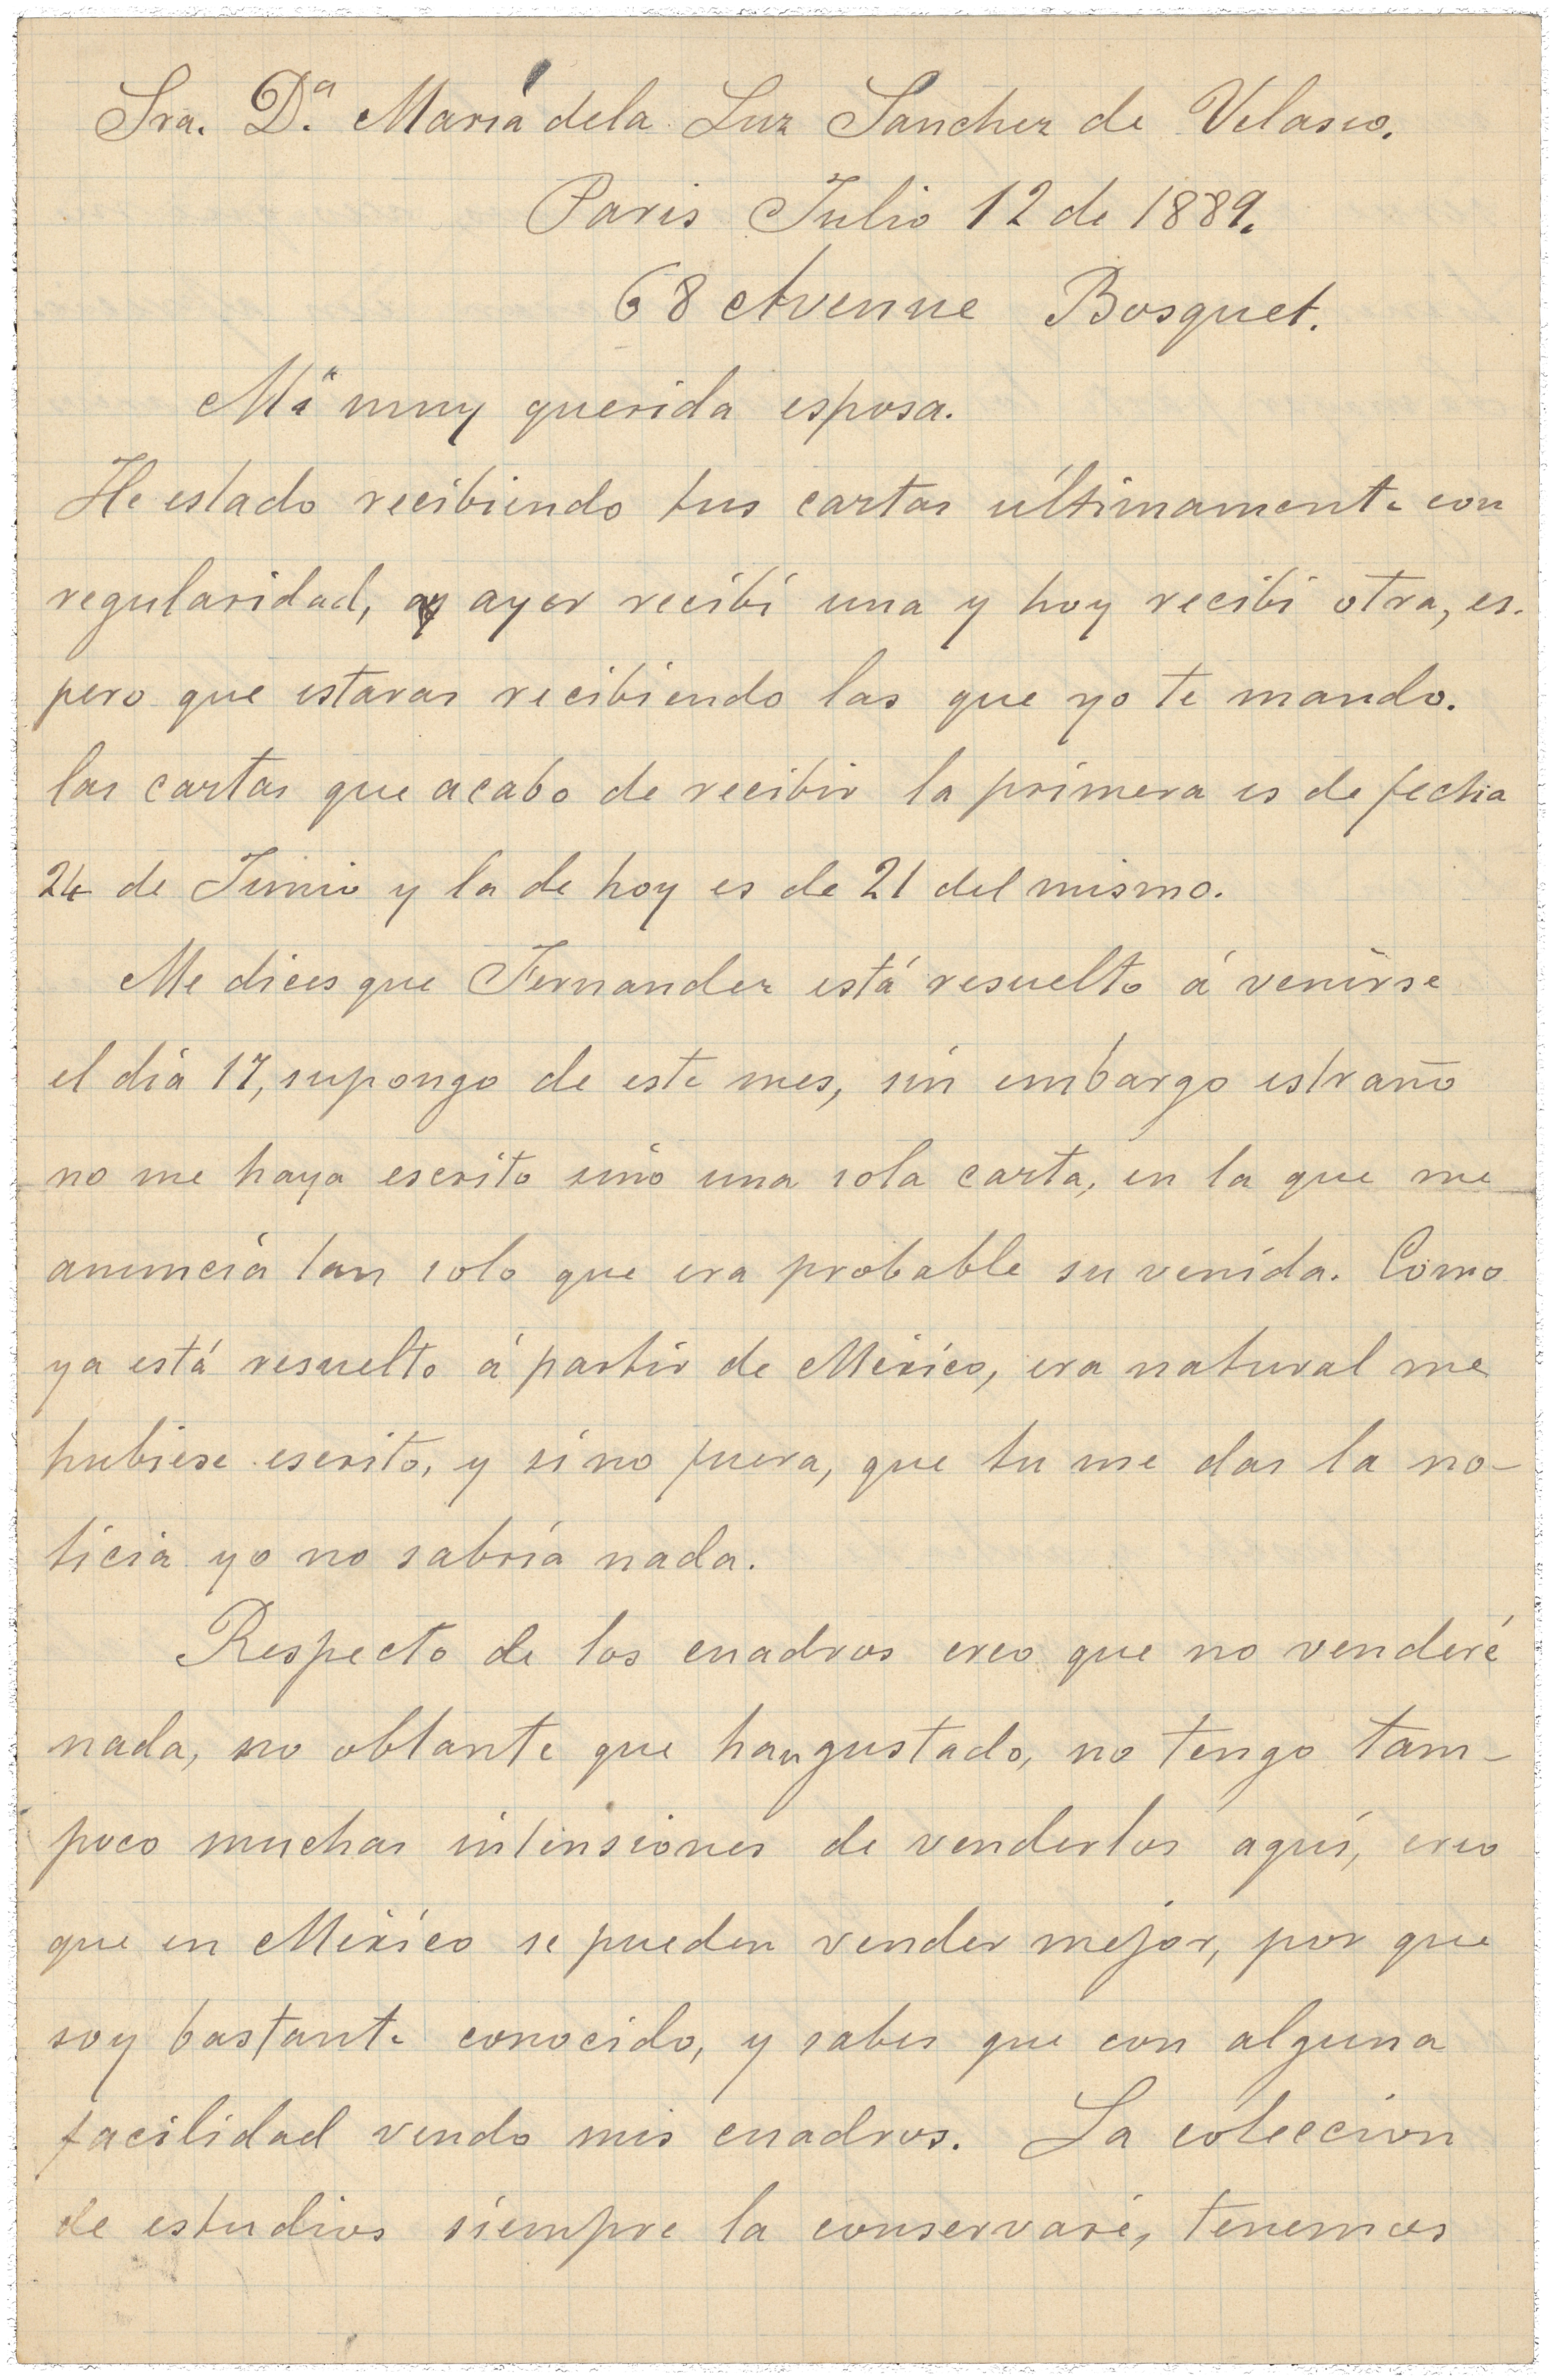 Sra. D.ª María dela Luz Sanchez de Velasco.
Paris Julio 12 de 1889.
68 Avenue Bosquet.
Mi muy querida esposa.
He estado recibiendo tus cartas últimamente con
regularidad, ay ayer recibi una y hoy recibi otra, es-
pero que estaras recibiendo las que yo te mando.
las cartas que acabo de recibir la primera es de fecha
24 de Junio y la de hoy es de 21 del mismo.
Me dices que Fernandez está resuelto á venirse
el dia 17, supongo de este mes, sin embargo estraño
no me haya escrito sino una sola carta, en la que me
anuncia tan solo que era probable su venida. Como
ya está resuelto á partir de México, era natural me
hubiese escrito, y si no fuera, que tu me das la no-
ticia yo no sabria nada.
Respecto de los cuadros creo que no venderé
nada, no obtante que han gustado, no tengo tam-
poco muchas intensiones de venderlos aqui, creo
que en México se pueden vender mejor, por que
soy bastante conocido, y sabes que con alguna
facilidad vendo mis cuadros. La coleccion
de estudios siempre la conservaré, tenemos